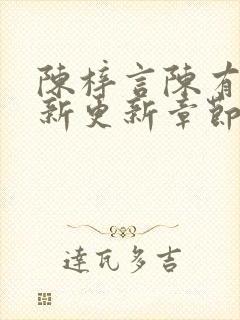 陳梓言陳有
新更新章節
達瓦多吉